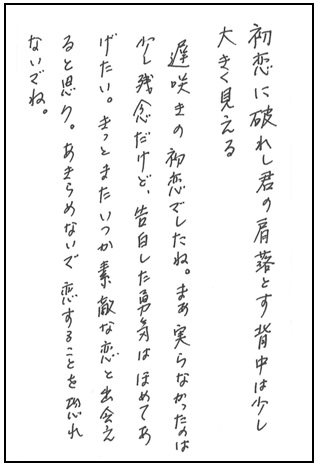 初恋に破れし君の肩落とす背中は少し
大きく見える
遅咲きの初恋でしたね。まあ実らなかったのは
少し残念だけど、告白した勇気はほめてあ
げたい。きっとまたいつか素敵な恋と出会え
ると思う。あきらめないで恋することを恐れ
ないでね。